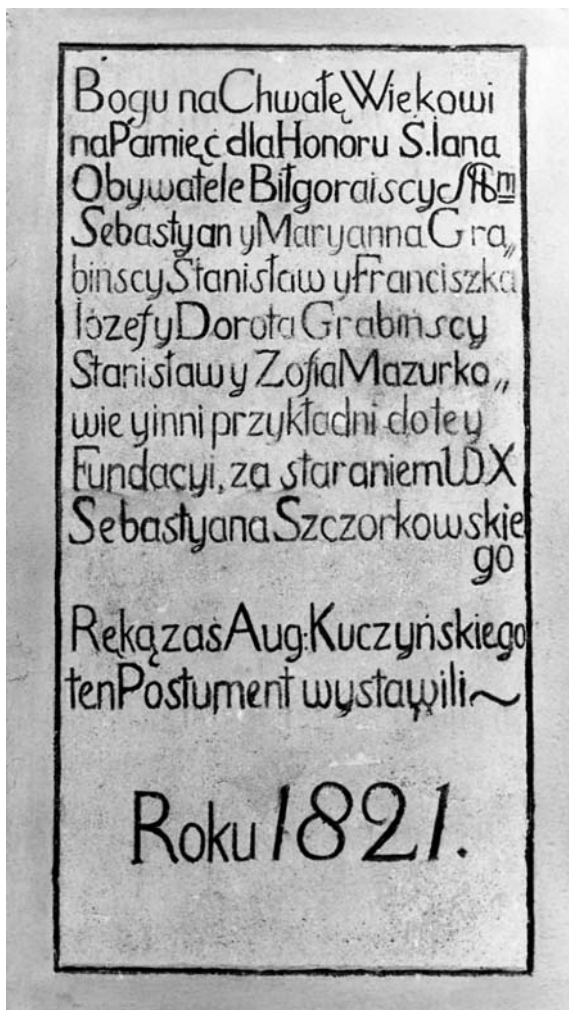 Bogu na Chwałę Wiekowi
na Pamięć dla Honoru S. Iana
Obywatele Biłgoraiscy
Sebastyan y Maryanna Gra„
binscy Stanisław y Franciszka
Iózef y Dorota Grabinscy
Stanisław y Zofia Mazurko„
wie y inni przykładni do tey
Fundacyi, za staraniem WDX
Sebastyana Szczorkowskie
go
Ręką zaś Aug: Kuczyńskiego
ten Postument wystawili~
Roku 1821.